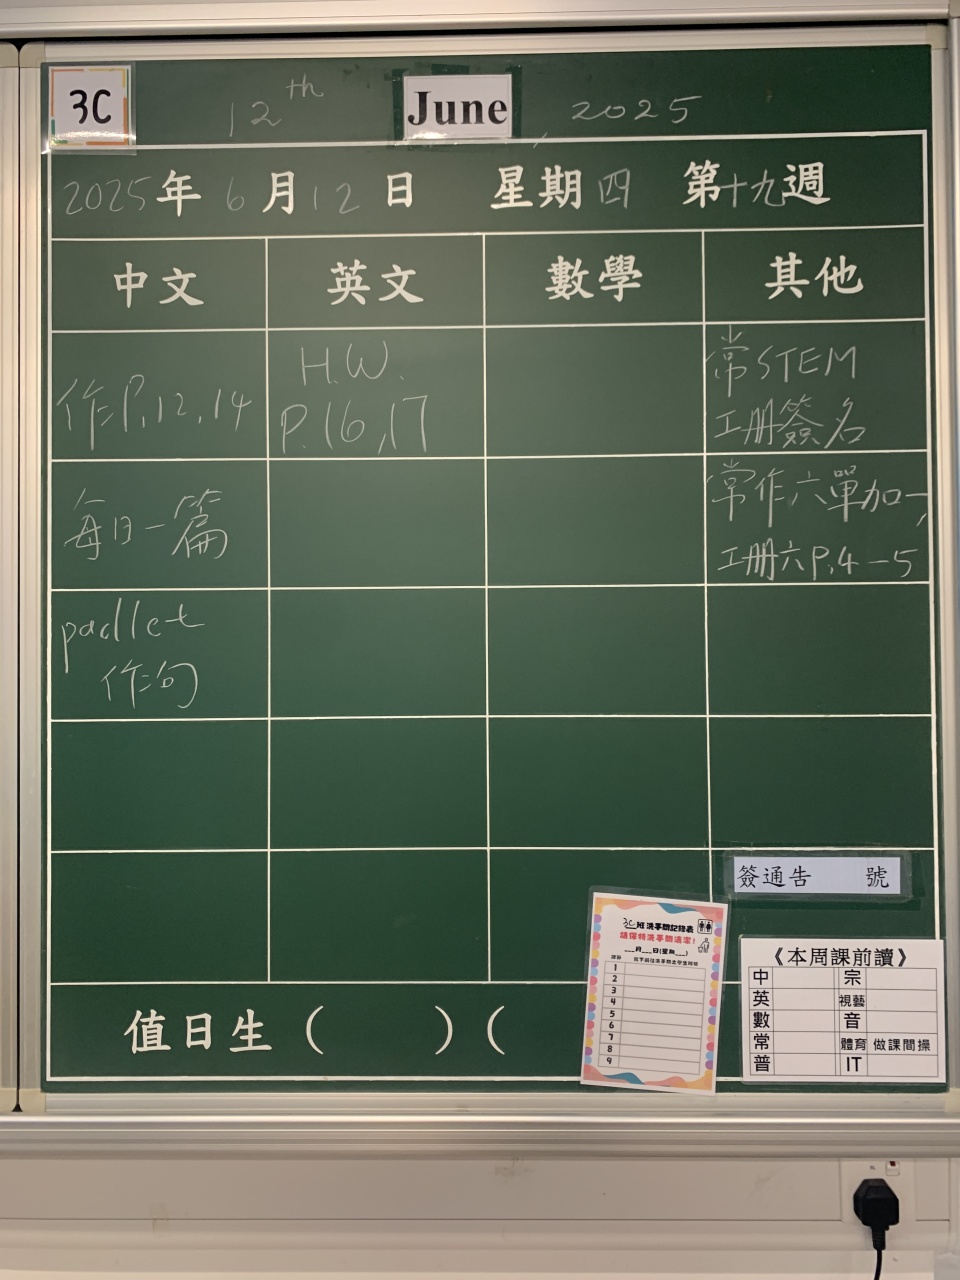 3C
12th June, 2025
2025年6月12日 星期四 第十九週
中文 英文 數學 其他
作P.12,14
H.W.
P.16,17
常STEM
工册簽名
每日一篇
常作六單加一,
工册六P.4-5
padlet
作句
簽通告 號
值日生( )(
3C班洗手間記錄表
請保持洗手間清潔!
月 日(星期 )
1
2
3
4
5
6
7
8
9
《本周課前讀》
中 宗
英 視藝
數 音
常 體育 做課間操
普 IT